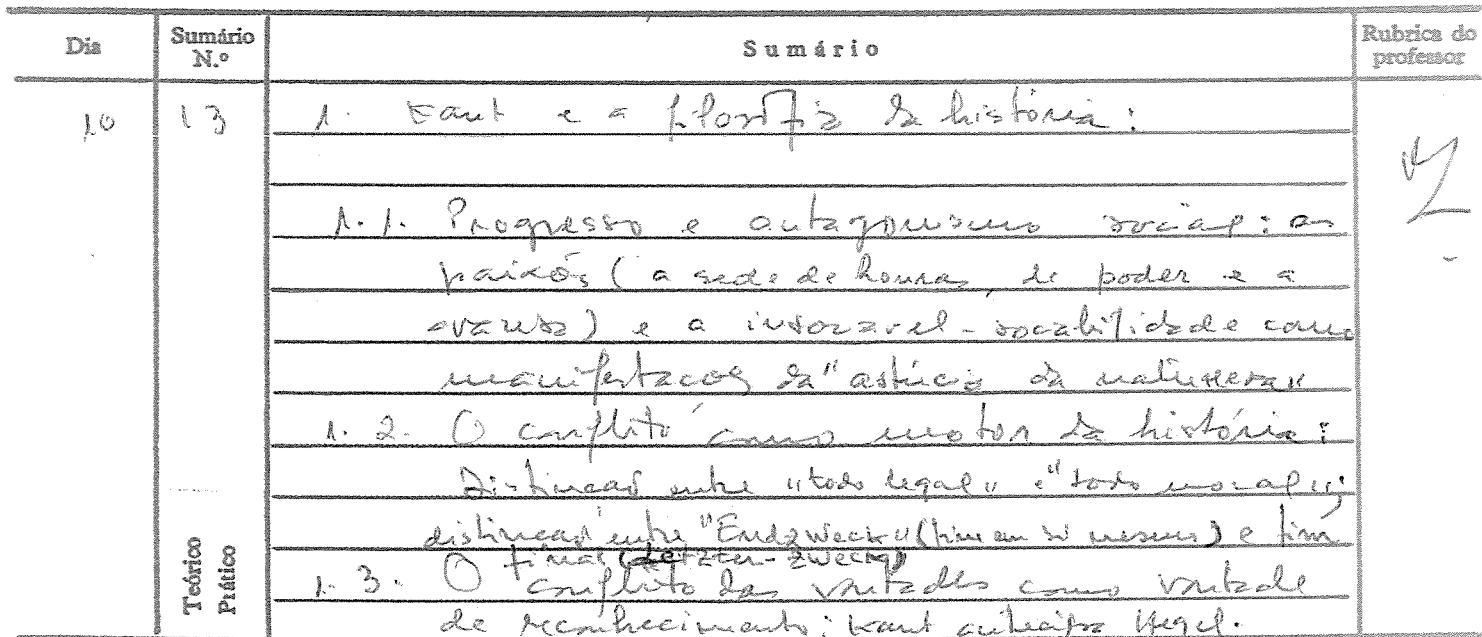 Dia Sumário N.º Sumário Rubrica do professor
10 13 1. Kant e a filosofia da história:
1.1. Progresso e antagonismo social: as
paixões (a sede de honras, de poder e a
avareza) e a insociável-sociabilidade como
manifestações da "astúcia da natureza"
1.2. O conflito como motor da história:
Distinção entre "todo legal" e "todo moral";
distinção entre "Endzweck" (fim em si mesmo) e fim
final (letzter-zweck)
1.3. O conflito das vontades como vontade
de reconhecimento: Kant antecipa Hegel.
Teórico
Prático